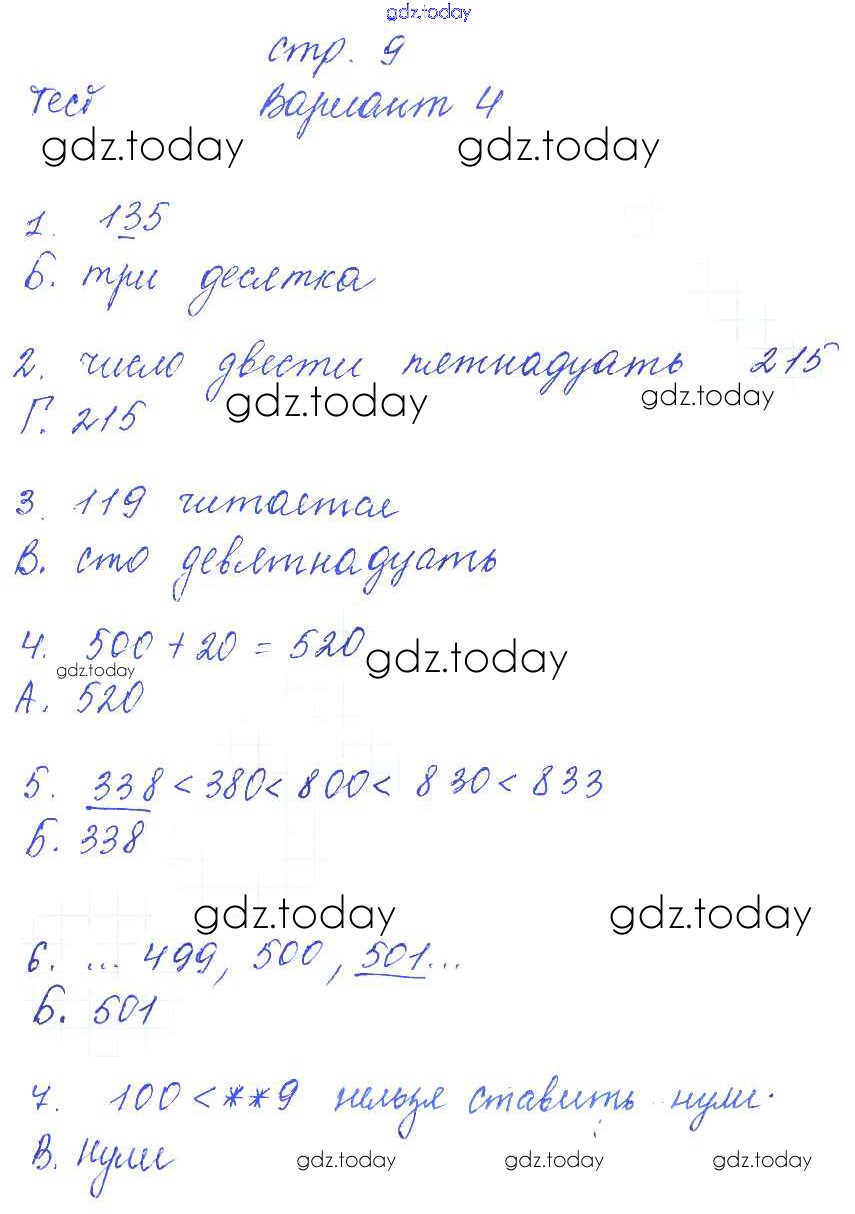 gdz.today
стр. 9
Тест Вариант 4
gdz.today gdz.today
1. 135
Б. три десятка
2. число двести пятнадцать 215
gdz.today gdz.today
Г. 215
3. 119 читается
В. сто девятнадцать
4. 500 + 20 = 520
gdz.today gdz.today
А. 520
5. 338 < 380 < 800 < 830 < 833
Б. 338
gdz.today gdz.today
6. ... 499, 500, 501...
Б. 501
7. 100 < **9 нельзя ставить нули.
В. Нули
gdz.today gdz.today gdz.today